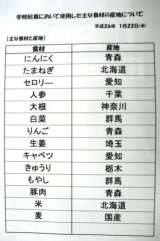 学校給食において使用した主な食材の産地について
平成26年 1月22日(水)
【主な食材と産地】
食材 産地
にんにく 青森
たまねぎ 北海道
セロリー 愛知
人参 千葉
大根 神奈川
白菜 群馬
りんご 青森
生姜 埼玉
キャベツ 愛知
きゅうり 栃木
もやし 群馬
豚肉 青森
米 北海道
麦 国産